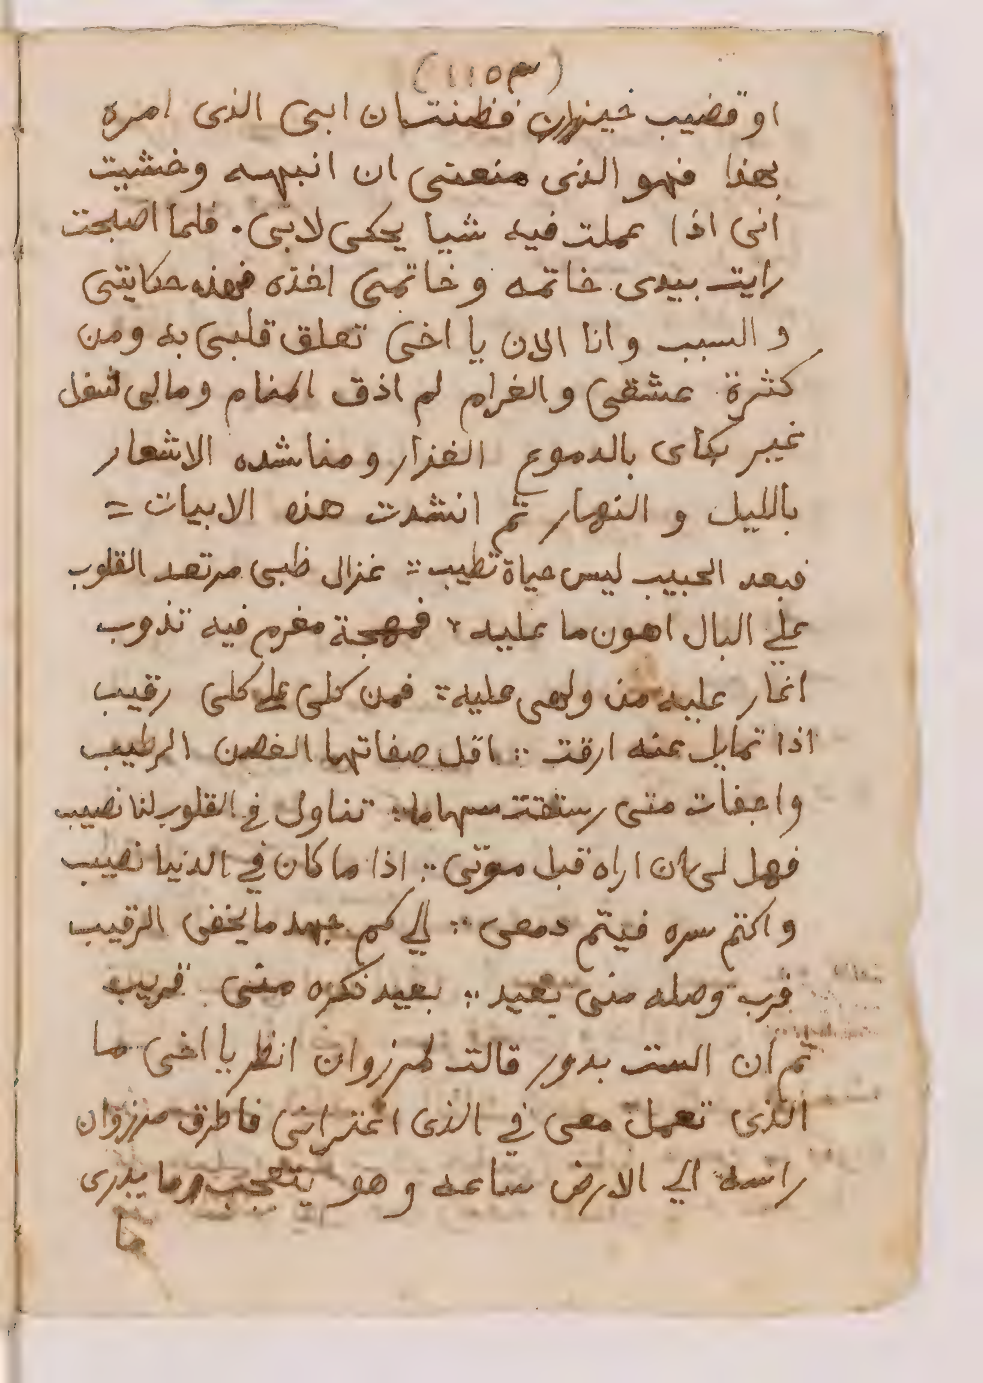 (١١٥٣)
او قضيب خيزران فظننت ان ابي الذى امره
بهذا فهو الذى منعنى ان انبهه وخشيت
انى اذا عملت فيه شيا يحكى لابى . فلما اصبحت
رايت بيدى خاتمه و خاتمى اخذه فهذه حكايتى
و السبب وانا الان يا اخى تعلق قلبى به ومن
كثرة عشقى والغرام لم اذق المنام ومالى شغل
غير بكاى بالدموع الغزار ومناشده الاشعار
بالليل و النهار ثم انشدت هذه الابيات =
فبعد الحبيب ليس حياة تطيب :: غزال ظبى مرتعه القلوب
على البال اهون ما عليه : فمهجة مغرم فيه تذوب
اغار عليه من ولهى عليه :: فمن كلى على كلى رقيب
اذا تمايل عنه ارقت :: اقل صفاتها الغصن الرطيب
واجفات متى سهاما :: تناول في القلوب لنا نصيب
فهل لى ان اراه قبل موتى :: اذا ما كان في الدنيا نصيب
واكتم سره فيتم دمعى :: الي كم جهد ما يخفى الرقيب
قرب وصله منى بعيد :: بعيد ذكره منى قريب
ثم ان الست بدور قالت لمرزوان انظر يا اخى ما
الذى تعمل معى في الذى اعترانى فاطرق مرزوان
راسه الي الارض ساعه وهو يتعجب وما يدرى
ما